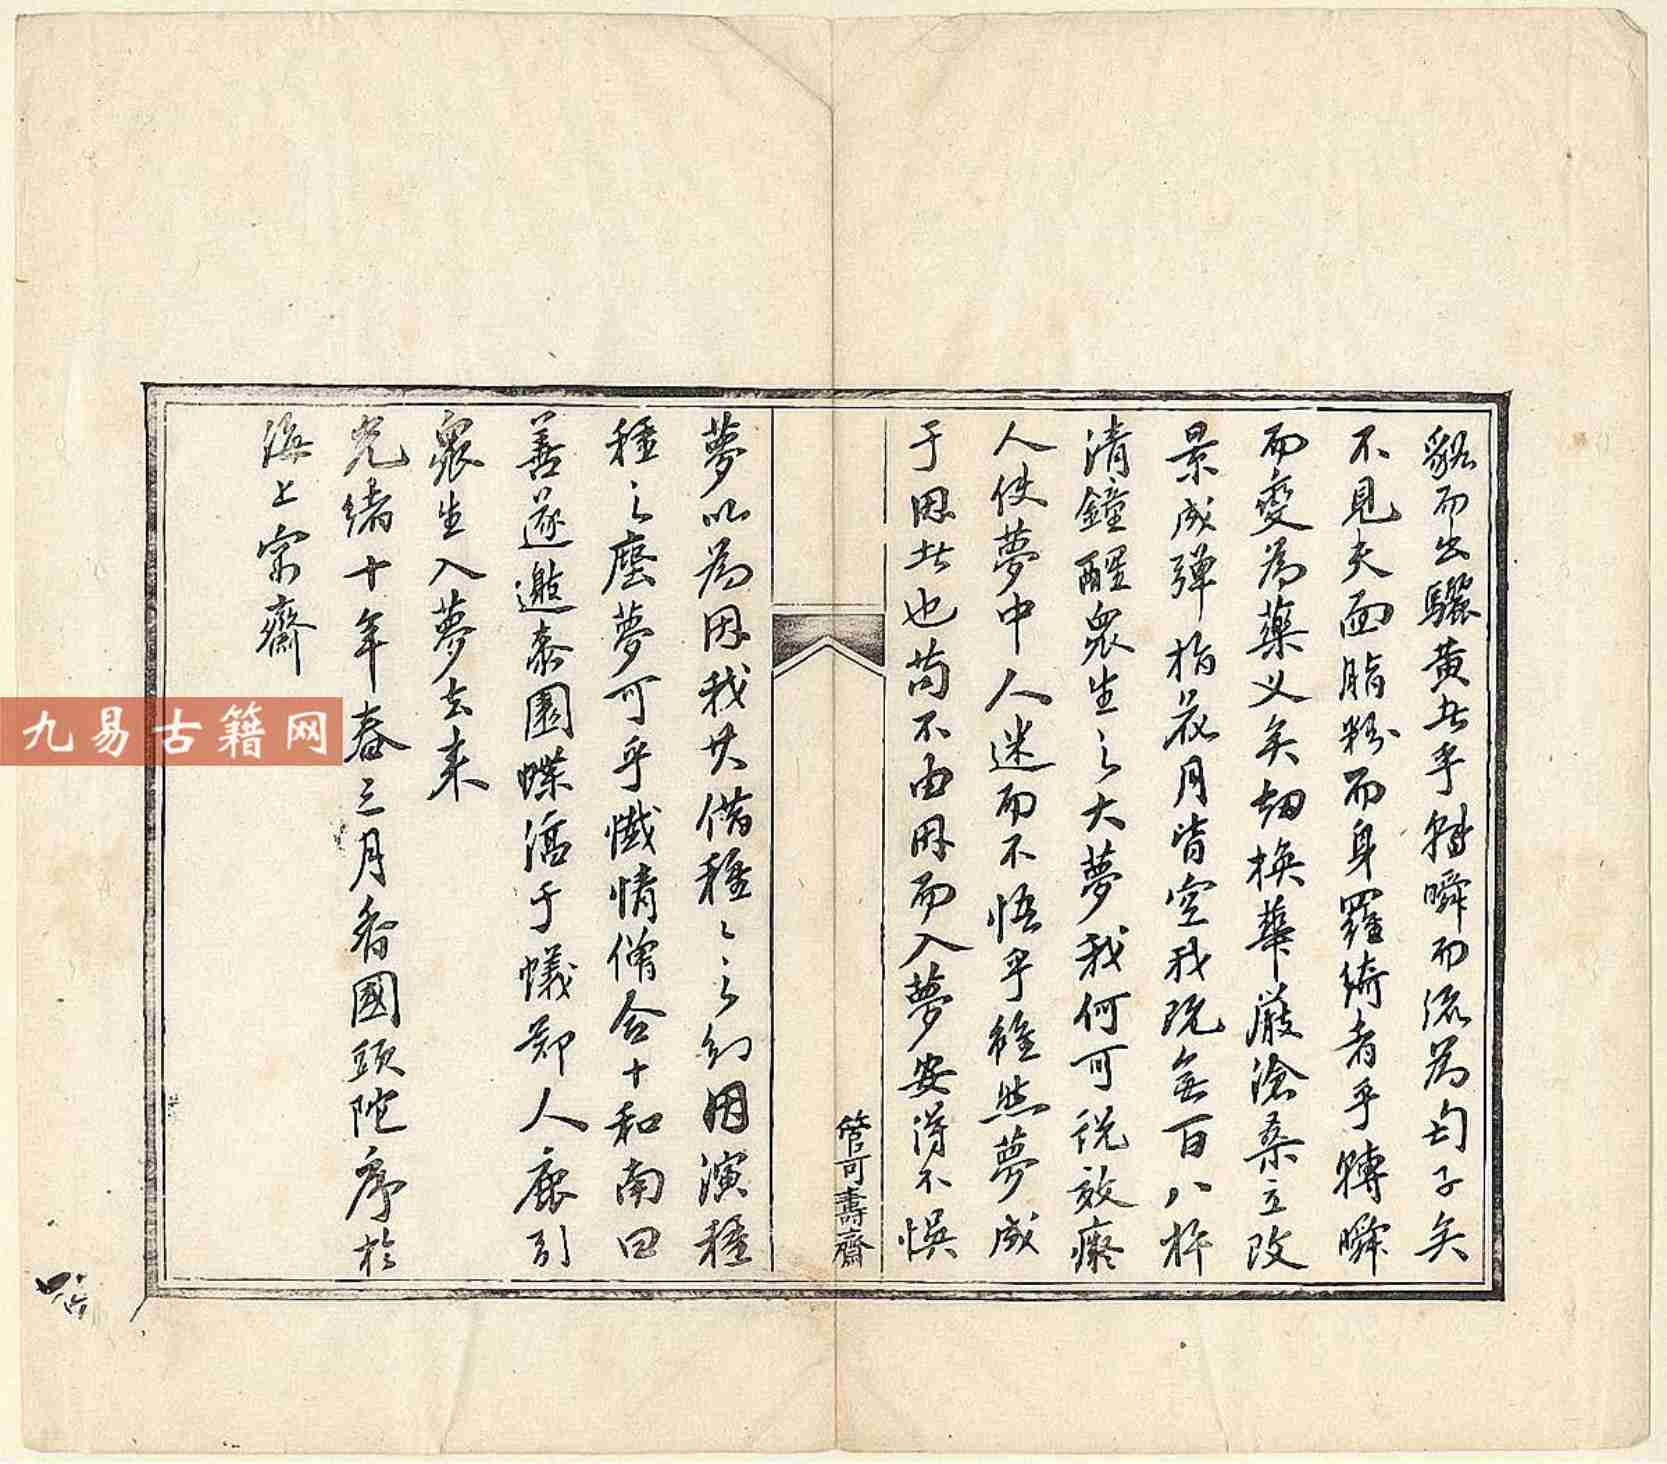 貂而出驪黃者乎轉瞬而流為匄子矣
不見夫面脂粉而身羅綺者乎轉瞬
而變為藥叉矣刧換華嚴滄桑立改
景成彈指花月皆空我既無百八杵
清鐘醒眾生之大夢我何可說效癡
人使夢中人迷而不悟乎雖然夢成
于因者也苟不由因而入夢安得不悞
夢以為因我其借種種之幻因演種
種之塵夢可乎懺情僧合十和南曰
善遂邀泰園蝶淳于蟻鄭人鹿引
眾生入夢去來
光緒十年春三月香國頭陀序於
海上宗齋
管可壽齋
九易古籍网